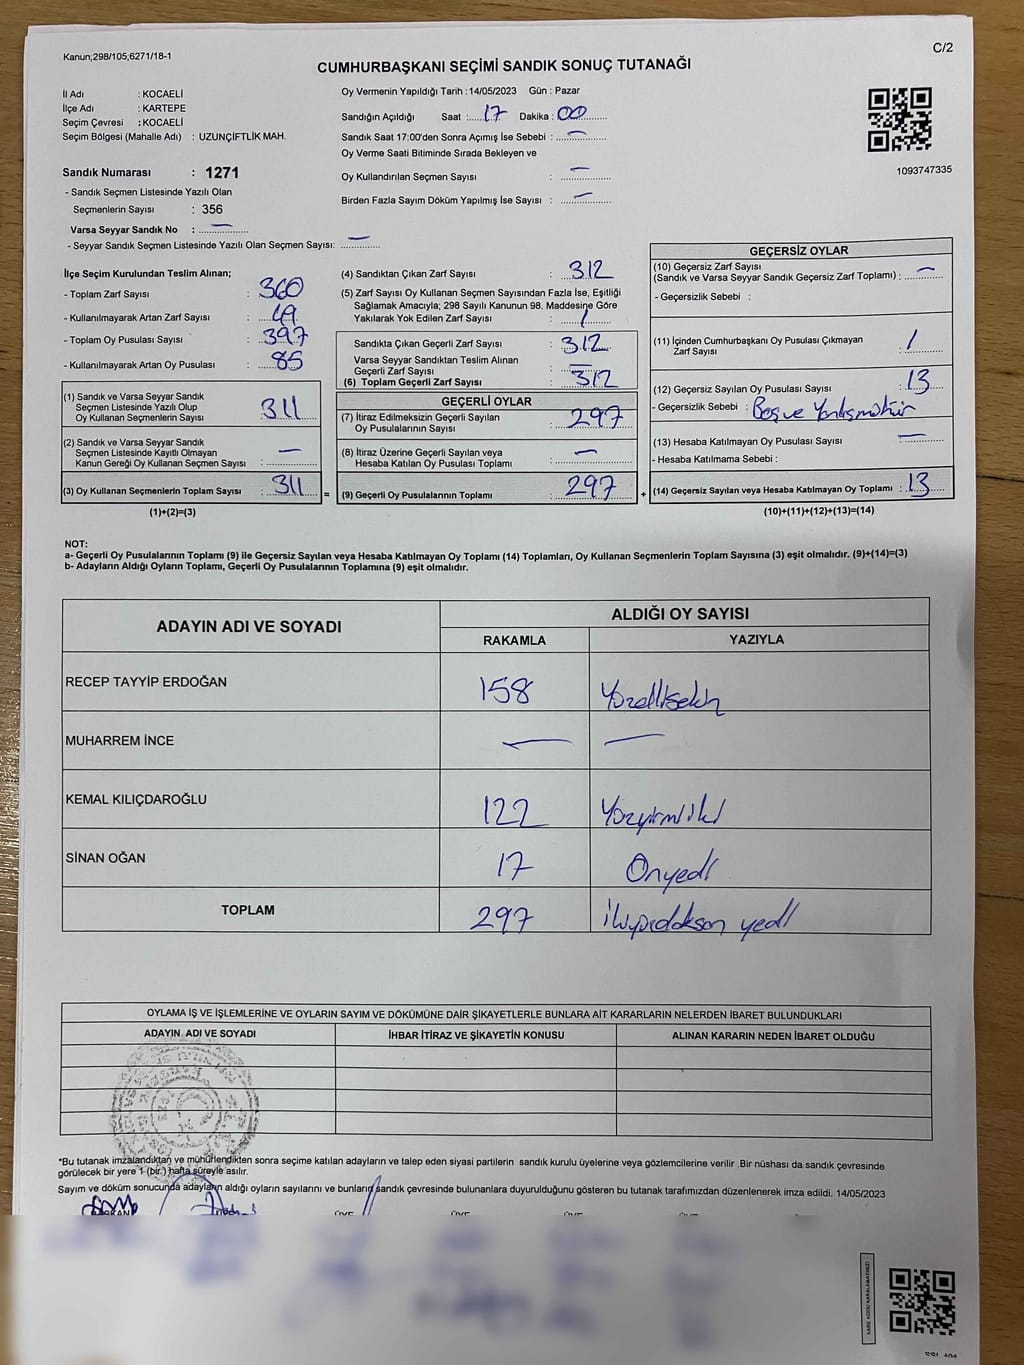 Kanun;298/105;6271/18-1
C/2
CUMHURBAŞKANI SEÇİMİ SANDIK SONUÇ TUTANAĞI
İl Adı : KOCAELİ
İlçe Adı : KARTEPE
Seçim Çevresi : KOCAELİ
Seçim Bölgesi (Mahalle Adı) : UZUNÇİFTLİK MAH.
Sandık Numarası : 1271
- Sandık Seçmen Listesinde Yazılı Olan
Seçmenlerin Sayısı : 356
Varsa Seyyar Sandık No : —
- Seyyar Sandık Seçmen Listesinde Yazılı Olan Seçmen Sayısı: —
Oy Vermenin Yapıldığı Tarih : 14/05/2023 Gün : Pazar
Sandığın Açıldığı Saat : 17 Dakika : 00
Sandık Saat 17:00'den Sonra Açımış İse Sebebi : —
Oy Verme Saati Bitiminde Sırada Bekleyen ve
Oy Kullandırılan Seçmen Sayısı : —
Birden Fazla Sayım Döküm Yapılmış İse Sayısı : —
1093747335
İlçe Seçim Kurulundan Teslim Alınan;
- Toplam Zarf Sayısı : 360
- Kullanılmayarak Artan Zarf Sayısı : 49
- Toplam Oy Pusulası Sayısı : 397
- Kullanılmayarak Artan Oy Pusulası : 85
(1) Sandık ve Varsa Seyyar Sandık
Seçmen Listesinde Yazılı Olup
Oy Kullanan Seçmenlerin Sayısı : 311
(2) Sandık ve Varsa Seyyar Sandık
Seçmen Listesinde Kayıtlı Olmayan
Kanun Gereği Oy Kullanan Seçmen Sayısı : —
(3) Oy Kullanan Seçmenlerin Toplam Sayısı : 311 =
(1)+(2)=(3)
(4) Sandıktan Çıkan Zarf Sayısı : 312
(5) Zarf Sayısı Oy Kullanan Seçmen Sayısından Fazla İse, Eşitliği
Sağlamak Amacıyla; 298 Sayılı Kanunun 98. Maddesine Göre
Yakılarak Yok Edilen Zarf Sayısı : /
Sandıkta Çıkan Geçerli Zarf Sayısı : 312
Varsa Seyyar Sandıktan Teslim Alınan
Geçerli Zarf Sayısı : —
(6) Toplam Geçerli Zarf Sayısı : 312
GEÇERLİ OYLAR
(7) İtiraz Edilmeksizin Geçerli Sayılan
Oy Pusulalarının Sayısı : 297
(8) İtiraz Üzerine Geçerli Sayılan veya
Hesaba Katılan Oy Pusulası Toplamı : —
(9) Geçerli Oy Pusulalarının Toplamı : 297 +
GEÇERSİZ OYLAR
(10) Geçersiz Zarf Sayısı
(Sandık ve Varsa Seyyar Sandık Geçersiz Zarf Toplamı) : —
- Geçersizlik Sebebi :
(11) İçinden Cumhurbaşkanı Oy Pusulası Çıkmayan
Zarf Sayısı : /
(12) Geçersiz Sayılan Oy Pusulası Sayısı : 13
- Geçersizlik Sebebi : Boş ve Yanlış mühür
(13) Hesaba Katılmayan Oy Pusulası Sayısı : —
- Hesaba Katılmama Sebebi :
(14) Geçersiz Sayılan veya Hesaba Katılmayan Oy Toplamı : 13
(10)+(11)+(12)+(13)=(14)
NOT:
a- Geçerli Oy Pusulalarının Toplamı (9) ile Geçersiz Sayılan veya Hesaba Katılmayan Oy Toplamı (14) Toplamları, Oy Kullanan Seçmenlerin Toplam Sayısına (3) eşit olmalıdır. (9)+(14)=(3)
b- Adayların Aldığı Oyların Toplamı, Geçerli Oy Pusulalarının Toplamına (9) eşit olmalıdır.
ADAYIN ADI VE SOYADI
ALDIĞI OY SAYISI
RAKAMLA YAZIYLA
RECEP TAYYİP ERDOĞAN 158 Yüzellisekiz
MUHARREM İNCE — —
KEMAL KILIÇDAROĞLU 122 Yüzyirmiiki
SİNAN OĞAN 17 Onyedi
TOPLAM 297 yedi
OYLAMA İŞ VE İŞLEMLERİNE VE OYLARIN SAYIM VE DÖKÜMÜNE DAİR ŞİKAYETLERLE BUNLARA AİT KARARLARIN NELERDEN İBARET BULUNDUKLARI
ADAYIN ADI VE SOYADI İHBAR İTİRAZ VE ŞİKAYETİN KONUSU ALINAN KARARIN NEDEN İBARET OLDUĞU
*Bu tutanak imzalandıktan ve mühürlendikten sonra seçime katılan adayların ve talep eden siyasi partilerin sandık kurulu üyelerine veya gözlemcilerine verilir .Bir nüshası da sandık çevresinde
görülecek bir yere 1 (bir.) hafta süreyle asılır.
Sayım ve döküm sonucunda adayların aldığı oyların sayılarını ve bunların sandık çevresinde bulunanlara duyurulduğunu gösteren bu tutanak tarafımızdan düzenlenerek imza edildi. 14/05/2023